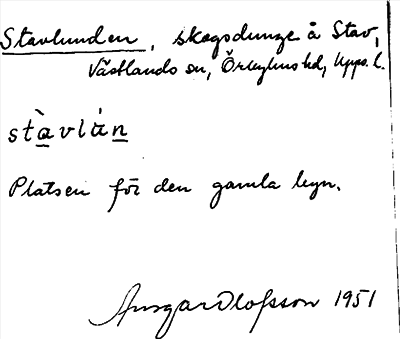 Stavlunden, skogsdunge å Stav,
Västlands sn, Örbyhus hd, Upps. l.
stàvlán
Platsen för den gamla byn.
Ansgar Olofsson 1951